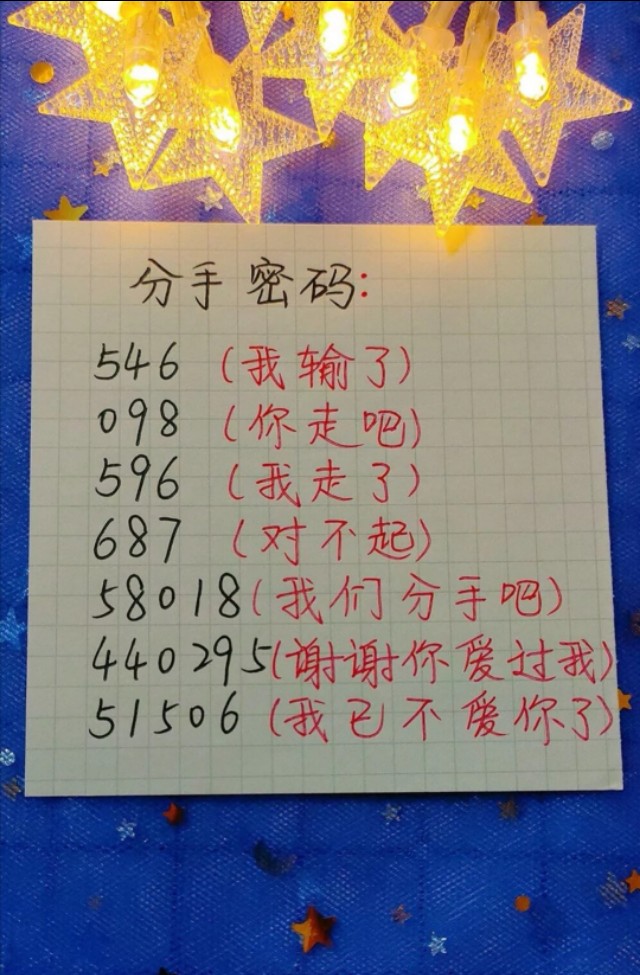 分手密码:
546 (我输了)
098 (你走吧)
596 (我走了)
687 (对不起)
58018(我们分手吧)
440295(谢谢你爱过我)
51506 (我已不爱你了)